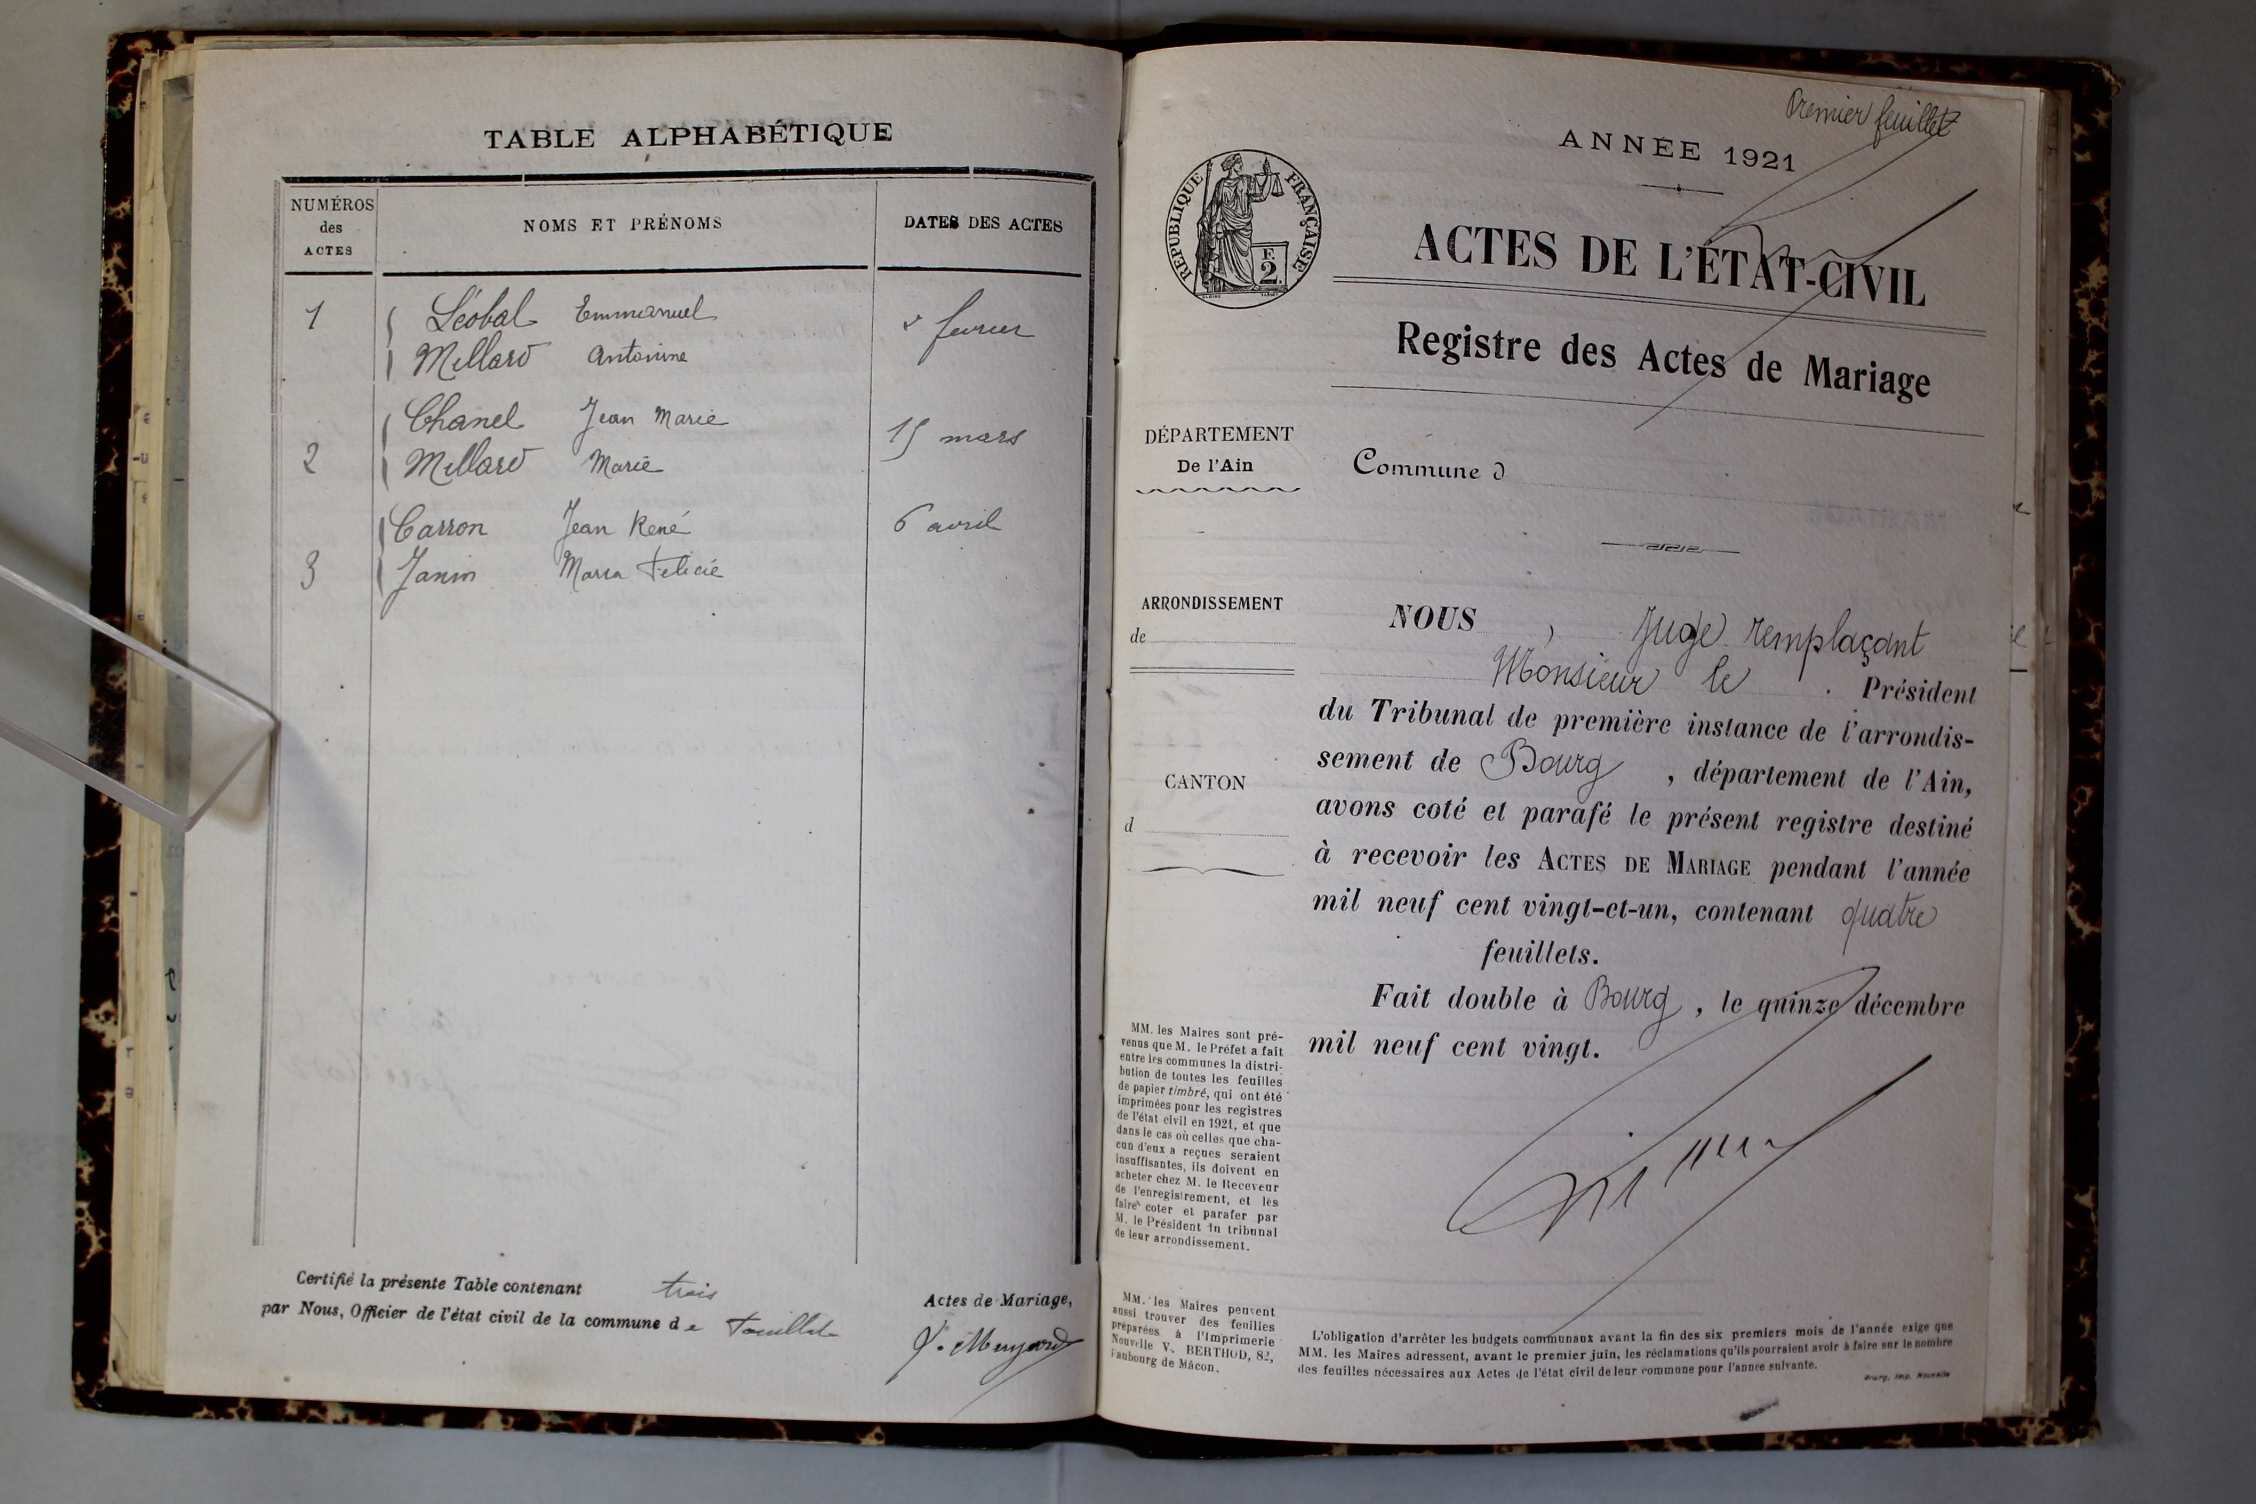 TABLE ALPHABÉTIQUE
NUMÉROS
des
ACTES
NOMS ET PRÉNOMS
DATES DES ACTES
1
Léobal Emmanuel
Millard Antonine
février
2
Chanel Jean Marie
Millard Marie
15 mars
3
Carron Jean René
Janin Maria Félicie
6 avril
Certifié la présente Table contenant trois Actes de Mariage,
par Nous, Officier de l'état civil de la commune de
Premier feuillet
ANNÉE 1921
RÉPUBLIQUE FRANÇAISE
F.
2.
ACTES DE L'ÉTAT-CIVIL
Registre des Actes de Mariage
DÉPARTEMENT
De l'Ain
Commune d
ARRONDISSEMENT
de
CANTON
d
NOUS , Juge remplaçant
Monsieur le Président
du Tribunal de première instance de l'arrondis-
sement de Bourg , département de l'Ain,
avons coté et parafé le présent registre destiné
à recevoir les ACTES DE MARIAGE pendant l'année
mil neuf cent vingt-et-un, contenant quatre
feuillets.
Fait double à Bourg , le quinze décembre
mil neuf cent vingt.
MM. les Maires sont pré-
venus que M. le Préfet a fait
entre les communes la distri-
bution de toutes les feuilles
de papier timbré, qui ont été
imprimées pour les registres
de l'état civil en 1921, et que
dans le cas où celles que cha-
cun d'eux a reçues seraient
insuffisantes, ils doivent en
acheter chez M. le Receveur
de l'enregistrement, et les
faire coter et parafer par
M. le Président du tribunal
de leur arrondissement.
MM. les Maires peuvent
aussi trouver des feuilles
préparées à l'Imprimerie
Nouvelle V. BERTHOD, 82,
Faubourg de Mâcon.
L'obligation d'arrêter les budgets communaux avant la fin des six premiers mois de l'année exige que
MM. les Maires adressent, avant le premier juin, les réclamations qu'ils pourraient avoir à faire sur le nombre
des feuilles nécessaires aux Actes de l'état civil de leur commune pour l'année suivante.
Bourg, Imp. Nouvelle